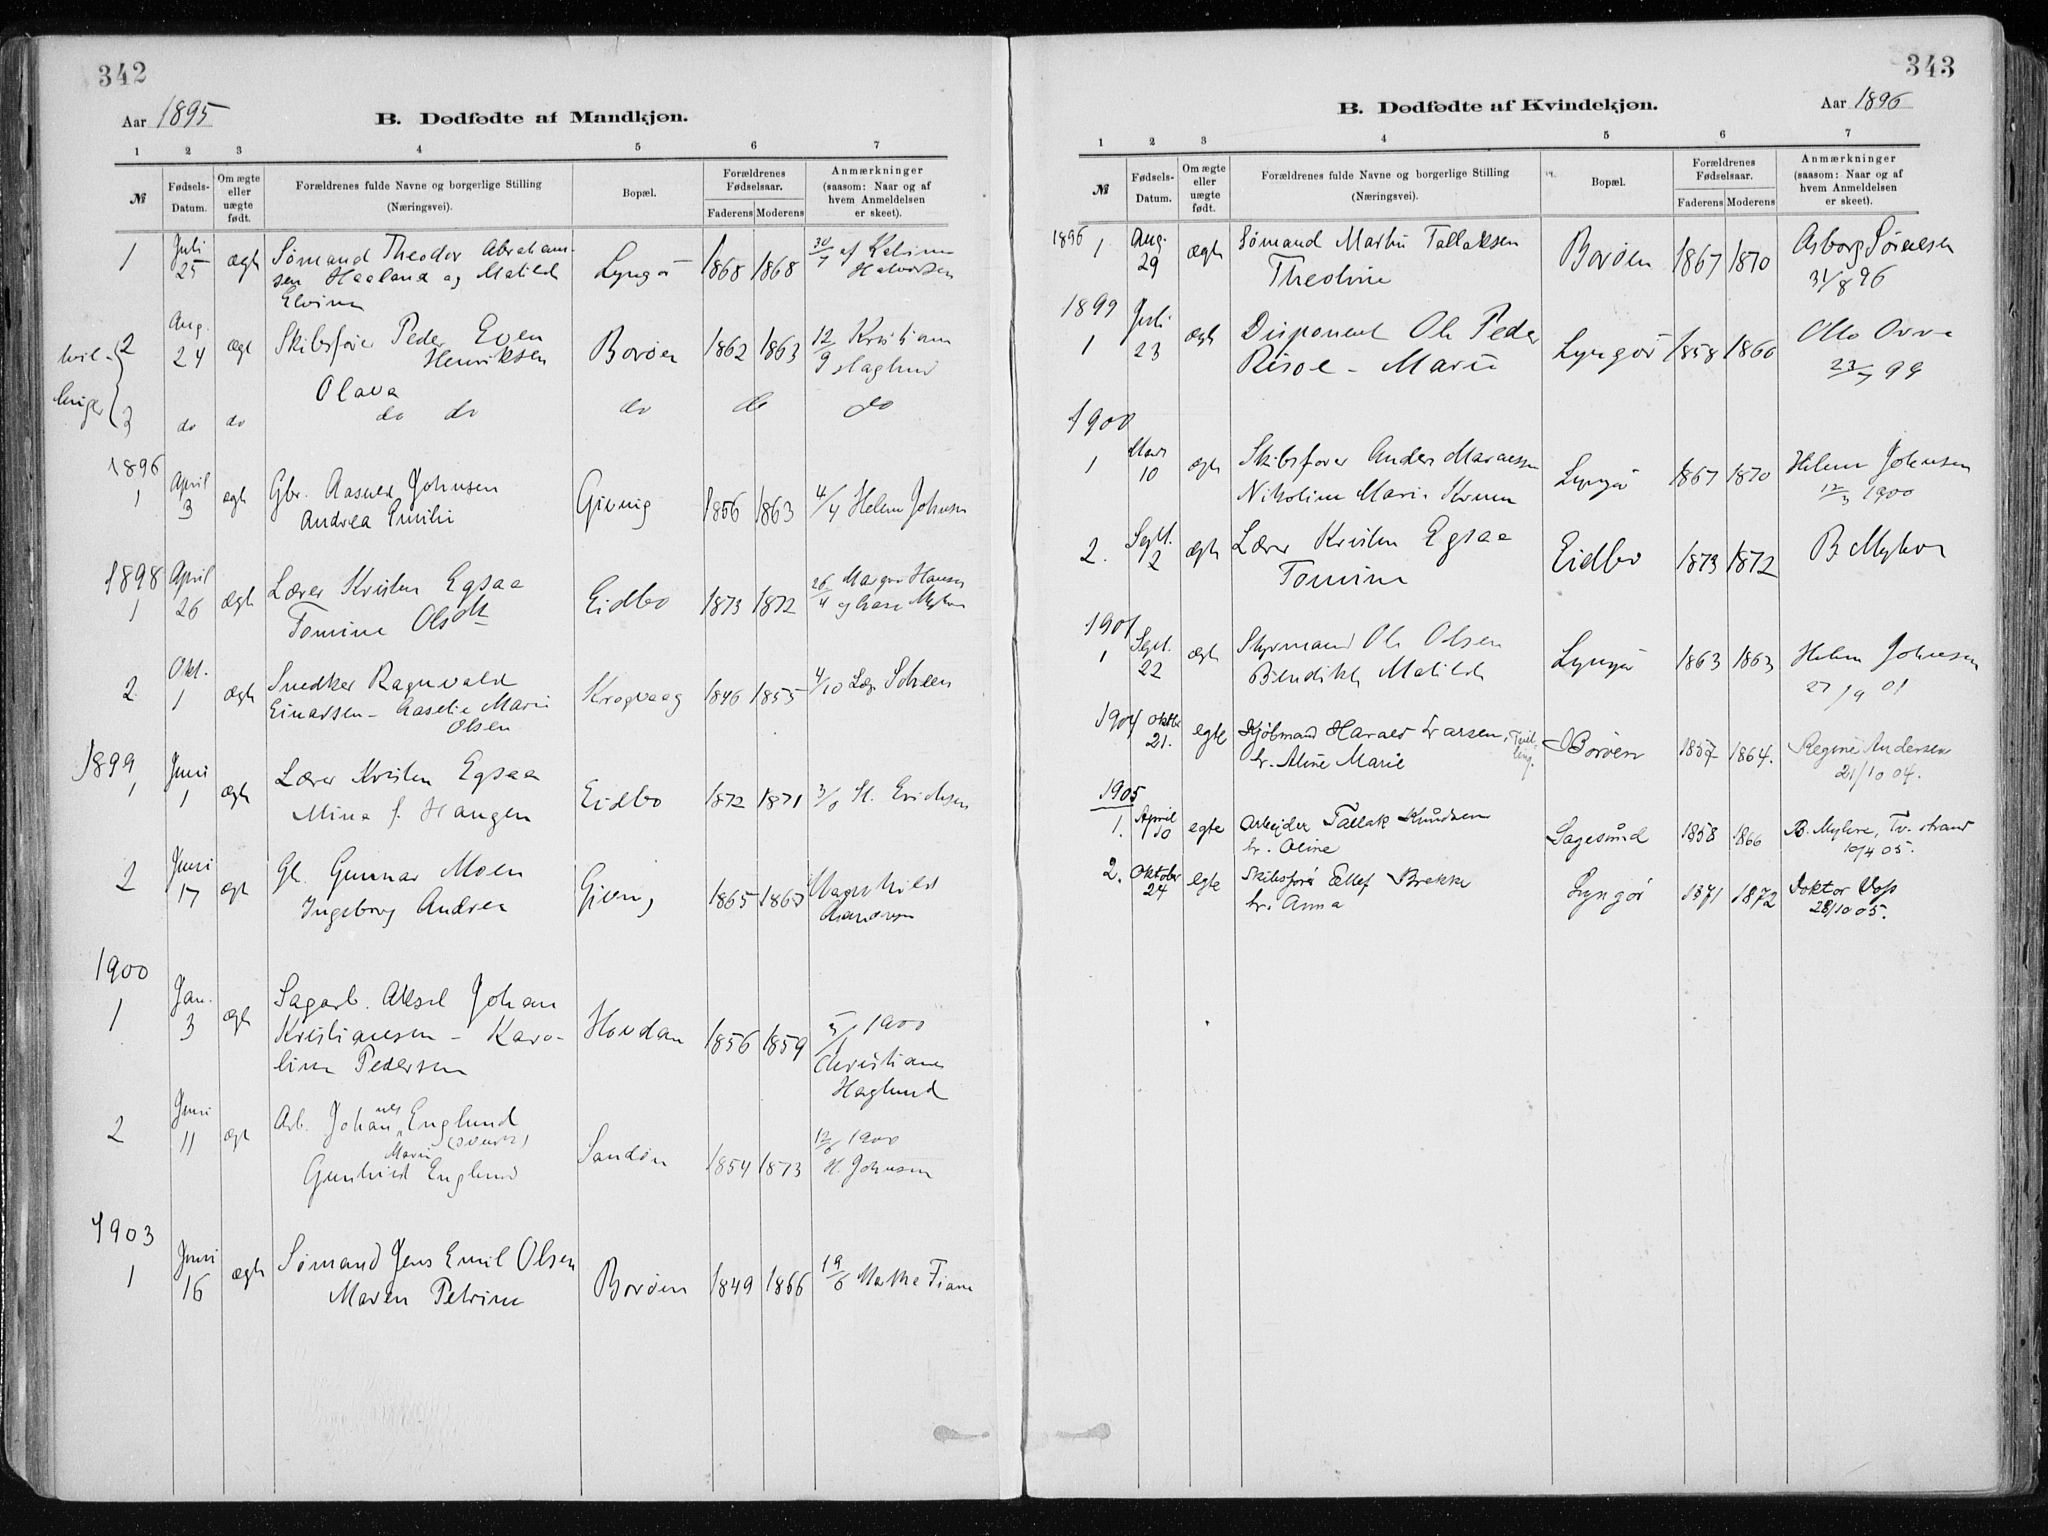 342
Aar 1895
B. Dødfødte af Mandkjøn.
1 2 3 4 5 6 7
№ Fødsels-Datum. Om ægte eller uægte født. Forældrenes fulde Navne og borgerlige Stilling (Næringsvei). Bopæl. Forældrenes Fødselsaar. Faderens Moderens Anmærkninger (saasom: Naar og af hvem Anmeldelsen er skeet).
1 Juli 25 ægte Sømand Theodor Abraham-
sen Haaland og Matilde Lyngør 1868 1868 30/7 af Katrine Halvorsen
Elvine
2 Aug. 24 ægt Skibsfører Peder Even
Henriksen Borøen 1862 1863 12/9 Kristiane Haglund
Olava
tvil-
linger
3 do do do do do do do
1896
1 April 3 ægte Gbr. Aasuld Johnsen
Andrea Emilie Gjeving 1856 1863 4/4 Helene Johnsen
1898
1 April 26 ægte Lærer Kristen Egsaa
Tomine Olsdt. Eidbo 1873 1872 26/4 Hansen
2 Okt. 1 ægte Snedker Ragnvald
Einarsen - Aaselie Marie
Olsen Krogvaag 1846 1855 4/10
1899
1 Juni 1 ægte Lærer Kristen Egsaa
Mina f. Haugen Eidbo 1872 1871 St. Erichsen
2 Juni 17 ægt Gb. Gunnar Moen
Ingeborg Andrea Gjeving 1865 1865
1900
1 Jan. 3 ægte Sagarb. Aksel Johan
Kristiansen - Karo-
line Pedersen Hovdan 1856 1859 5/1 1900
Christiane
Haglund
2 Juni 11 ægt Arb. Johannes Englund
Marie
Gunhild Englund Sandøen 1854 1873 12/6 1900
H. Johnsen
1903
1 Juni 16 ægte Sømand Jens Emil Olsen
Maren Petrine Borøen 1849 1866 19/6 Marthe Fiane
343
B. Dødfødte af Kvindekjøn. Aar 1896
1 2 3 4 5 6 7
№ Fødsels-Datum. Om ægte eller uægte født. Forældrenes fulde Navne og borgerlige Stilling (Næringsvei). Bopæl. Forældrenes Fødselsaar. Faderens Moderens Anmærkninger (saasom: Naar og af hvem Anmeldelsen er skeet).
1896 1 Aug. 29 ægte Sømand Martin Tallaksen
Theoline Borøen 1867 1870 Asborg Sørensen
31/8 96
1899
1 Juli 23 ægte Disponent Ole Peder
Risøe - Marie Lyngør 1858 1860
23/7 99
1900
1 Mars 10 ægte Skibsfører Anders Maraussen
Nikoline Marie Lyngør 1867 1870 Helene Johnsen
12/3 1900
2. Sept. 2 ægte Lærer Kristen Egsaa
Tomine Eidbo 1873 1872 B. Myhre
1901
1 Sept. 22 ægte Styrmand Ole Olsen
Bendikte Matilde Lyngør 1863 1863 Helene Johnsen
27/9 01
1904 Oktbr 21. egte Kjøbmand Harald Larsen, Tvil-
ling.
h. Aline Marie Borøen 1857 1864. Regine Andersen
21/10 04.
1905
1. April 10 egte Arbeider Tallak Knudsen
h. Oline Sagesund 1858 1866 B. Myhre, Tv.strand
10/4 05.
2. Oktober 24 egte Skibsfører Ellef Brekke
h. Anna Lyngør 1871 1872 Doktor Voss
28/10 05.